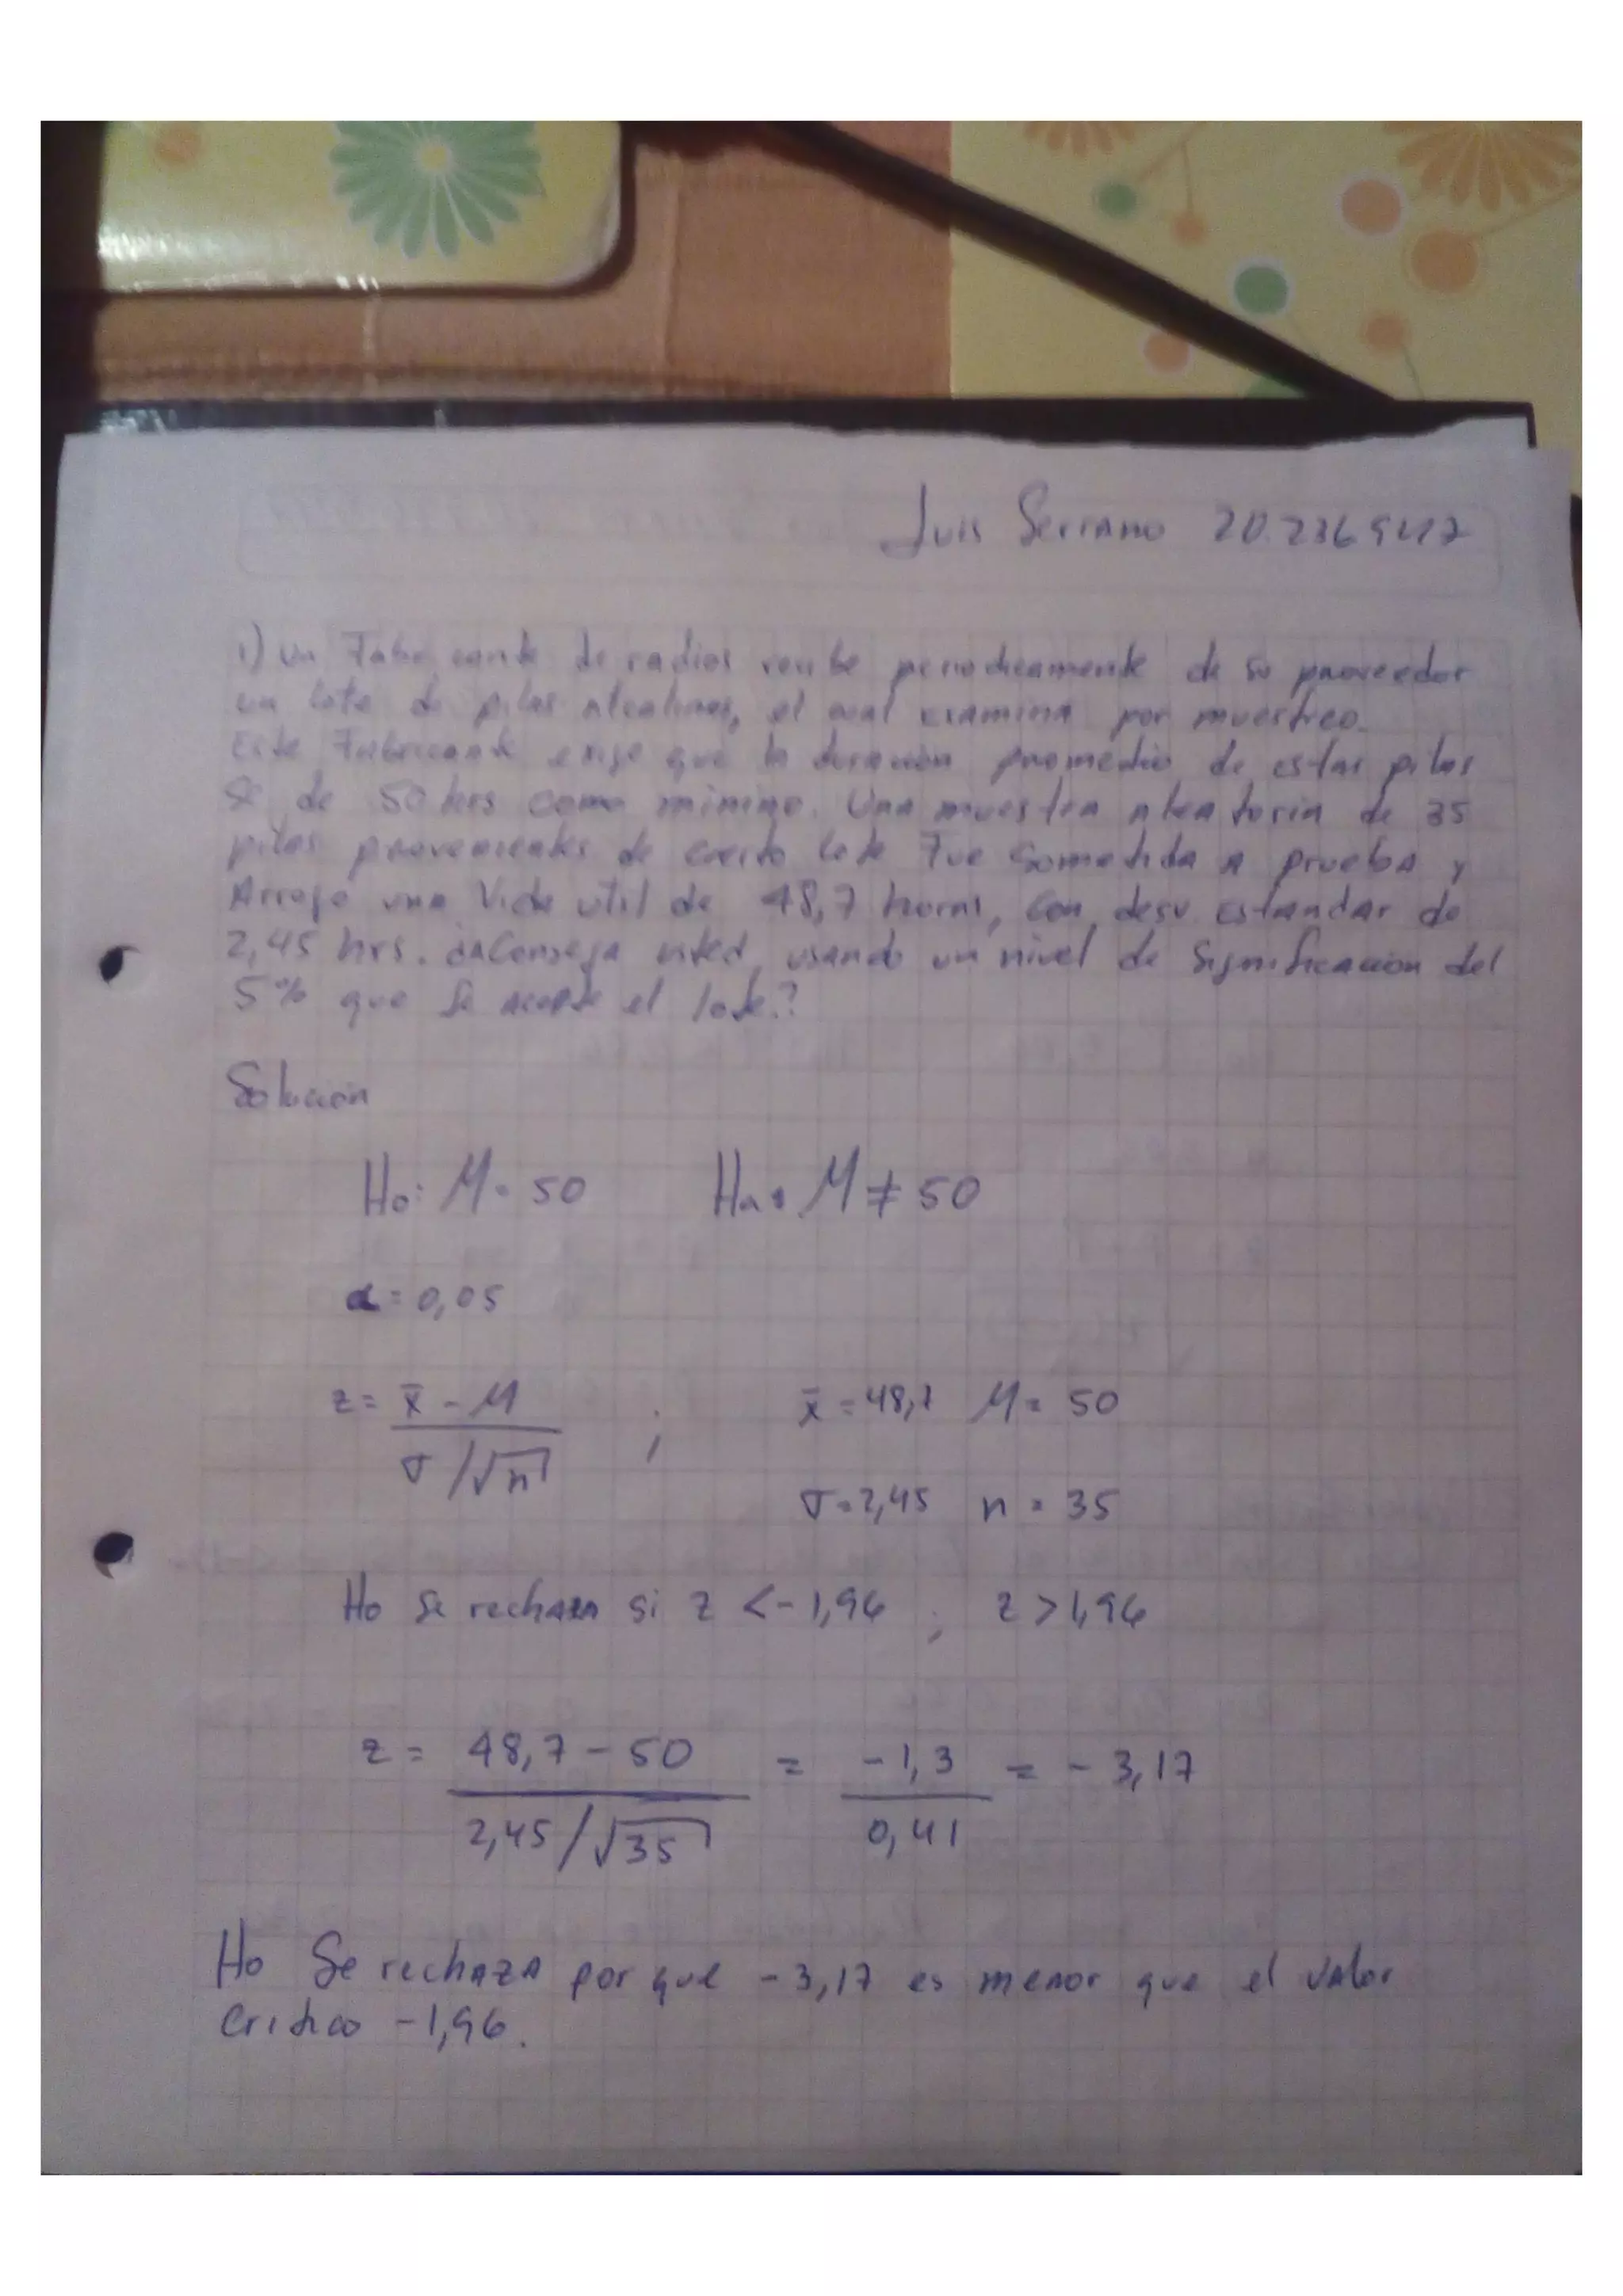 Luis Serrano 20.236947
1) Un Fabricante de radios recibe periodicamente de su proveedor
un lote de pilas alcalinas, el cual examina por muestreo.
Este Fabricante exige que la duración promedio de estas pilas
se de 50 hrs como minimo. Una muestra aleatoria de 35
pilas provenientes de cierto lote Fue sometida a prueba y
Arrojo una Vida util de 48,7 horas, con desv estandar de
2,45 hrs. ¿aconseja usted, usando un nivel de significación del
5% que se acepte el lote?
Solución
Ho: M = 50 Ha: M ≠ 50
α = 0,05
z = x̄ - M / σ/√n ; x̄ = 48,7 M = 50
σ = 2,45 n = 35
Ho Se rechaza si z < -1,96 ; z > 1,96
z = 48,7 - 50 / 2,45/√35 = -1,3 / 0,41 = -3,17
Ho Se rechaza por que -3,17 es menor que el valor
critico -1,96.